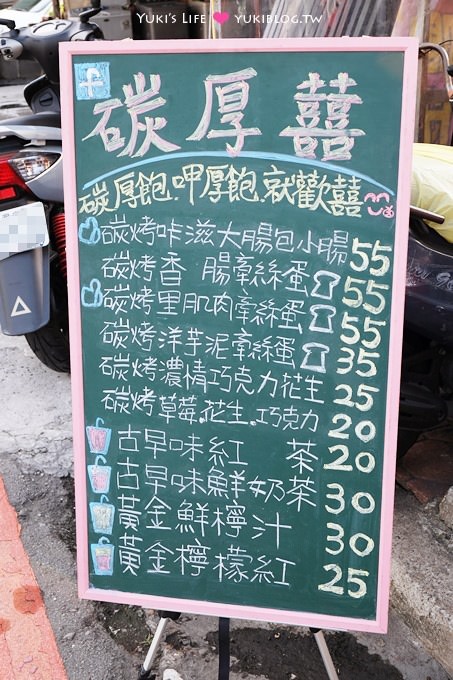 YUKI'S LIFE YUKIBLOG.TW
碳厚囍
碳厚飽.呷厚飽.就歡囍
碳烤咔滋大腸包小腸 55
碳烤香腸牽絲蛋 55
碳烤里肌肉牽絲蛋 55
碳烤洋芋泥牽絲蛋 35
碳烤濃情巧克力花生 25
碳烤草莓.花生.巧克力 20
古早味紅茶 20
古早味鮮奶茶 30
黃金鮮檸汁 30
黃金檸檬紅 25